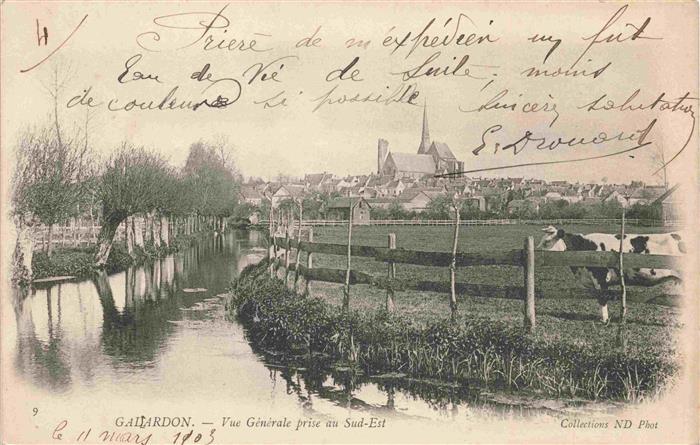 4
Prière de m'expédier un fut
Eau de Vie de Suite, moins
de couleur si possible Sincère salutation
E. Drouard
9
GALLARDON. — Vue Générale prise au Sud-Est
Collections ND Phot
le 11 mars 1903